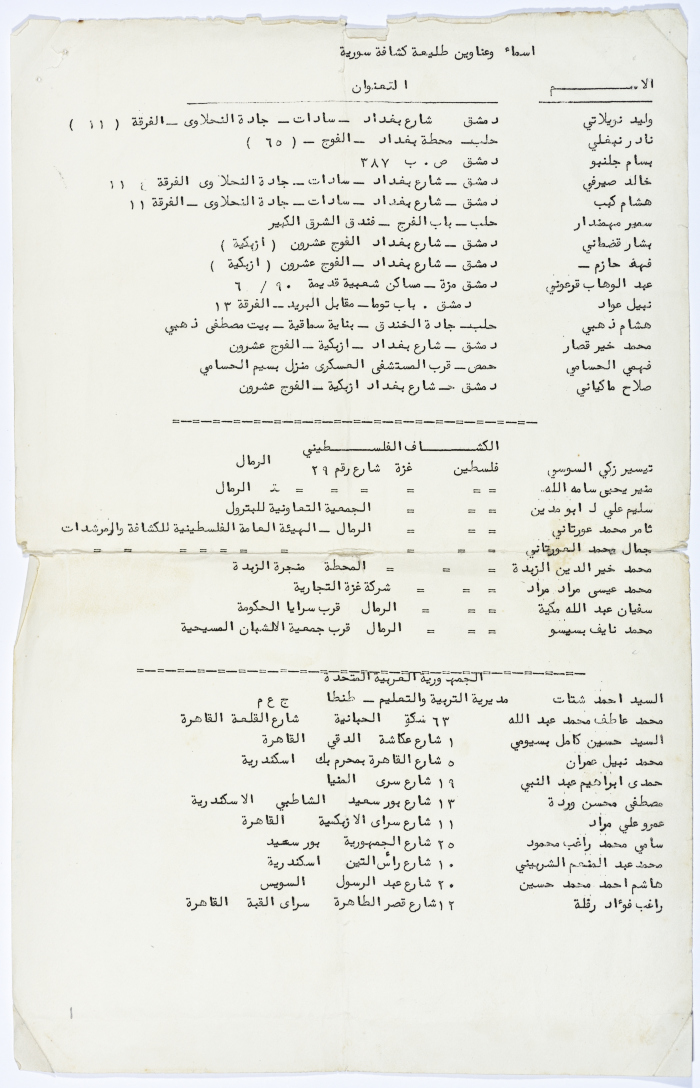 اسماء وعناوين طليعة كشافة سورية
الاسم العنوان
وليد نويلاتي دمشق شارع بغداد – سادات – جادة النحلاوى – الفرقة ( ١١ )
نادر نيفلي حلب – محطة بغداد – الفوج – ( ٦٥ )
بسام جلنبو دمشق ص . ب ٣٨٧
خالد صيرفي دمشق – شارع بغداد – سادات – جادة النحلاوى الفرقة ١١
هشام كيب دمشق – شارع بغداد – سادات – جادة النحلاوى – الفرقة ١١
سمير مهمندار حلب – باب الفرج – فندق الشرق الكبير
بشار قضماني دمشق – شارع بغداد الفوج عشرون ( ازبكية )
فهد حازم – دمشق – شارع بغداد – الفوج عشرون ( ازبكية )
عبد الوهاب قرعوني دمشق مزة – مساكن شعبية قديمة ٩٠ / ٦
نبيل عواد دمشق . باب توما – مقابل البريد – الفرقة ١٣
هشام ذهبي حلب – جادة الخندق – بناية سماقية – بيت مصطفى ذهبي
محمد خير قصار دمشق – شارع بغداد – ازبكية – الفوج عشرون
فهمي الحسامي حمص – قرب المستشفى العسكرى منزل بسيم الحسامي
صلاح ماكياني دمشق – شارع بغداد ازبكية – الفوج عشرون
الكشاف الفلسطيني
تيسير زكي السوسي فلسطين غزة شارع رقم ٢٩ الرمال
منير يحيى سامه الله = = = = = = = الرمال
سليم علي ابو مدين = = = الجمعية التعاونية للبترول
ثامر محمد عورتاني = = = الرمال – الهيئة العامة الفلسطينية للكشافة والمرشدات
جمال محمد العورتاني = = = = = = = = =
محمد خير الدين الزبدة = = = = المحطة منجرة الزبدة
محمد عيسى مراد مراد = = = شركة غزة التجارية
سفيان عبد الله مكية = = = = الرمال قرب سرايا الحكومة
محمد نايف بسيسو = = = الرمال قرب جمعية الالشبان المسيحية
الجمهورية العربية المتحدة
السيد احمد شتات مديرية التربية والتعليم – طنطا ج ع م
محمد عاطف محمد عبد الله ٦٣ سكة الحبانية شارع القلعة القاهرة
السيد حسين كامل بسيومي ١ شارع عكاشة الدقي القاهرة
محمد نبيل عمران ٥ شارع القاهرة بمحرم بك اسكندرية
حمدى ابراهيم عبد النبي ١٩ شارع سرى المنيا
مصطفى محسن وردة ١٣ شارع بور سعيد الشاطبي الاسكندرية
عمرو علي مراد ١١ شارع سراى الازبكية القاهرة
سامي محمد راغب محمود ٢٥ شارع الجمهورية بور سعيد
محمد عبد المنعم الشربيني ١٠ شارع رأس التين اسكندرية
هاشم احمد محمد حسين ٢٠ شارع عبد الرسول السويس
راغب فؤاد رقلة ١٢ شارع قصر الطاهرة سراى القبة القاهرة
١